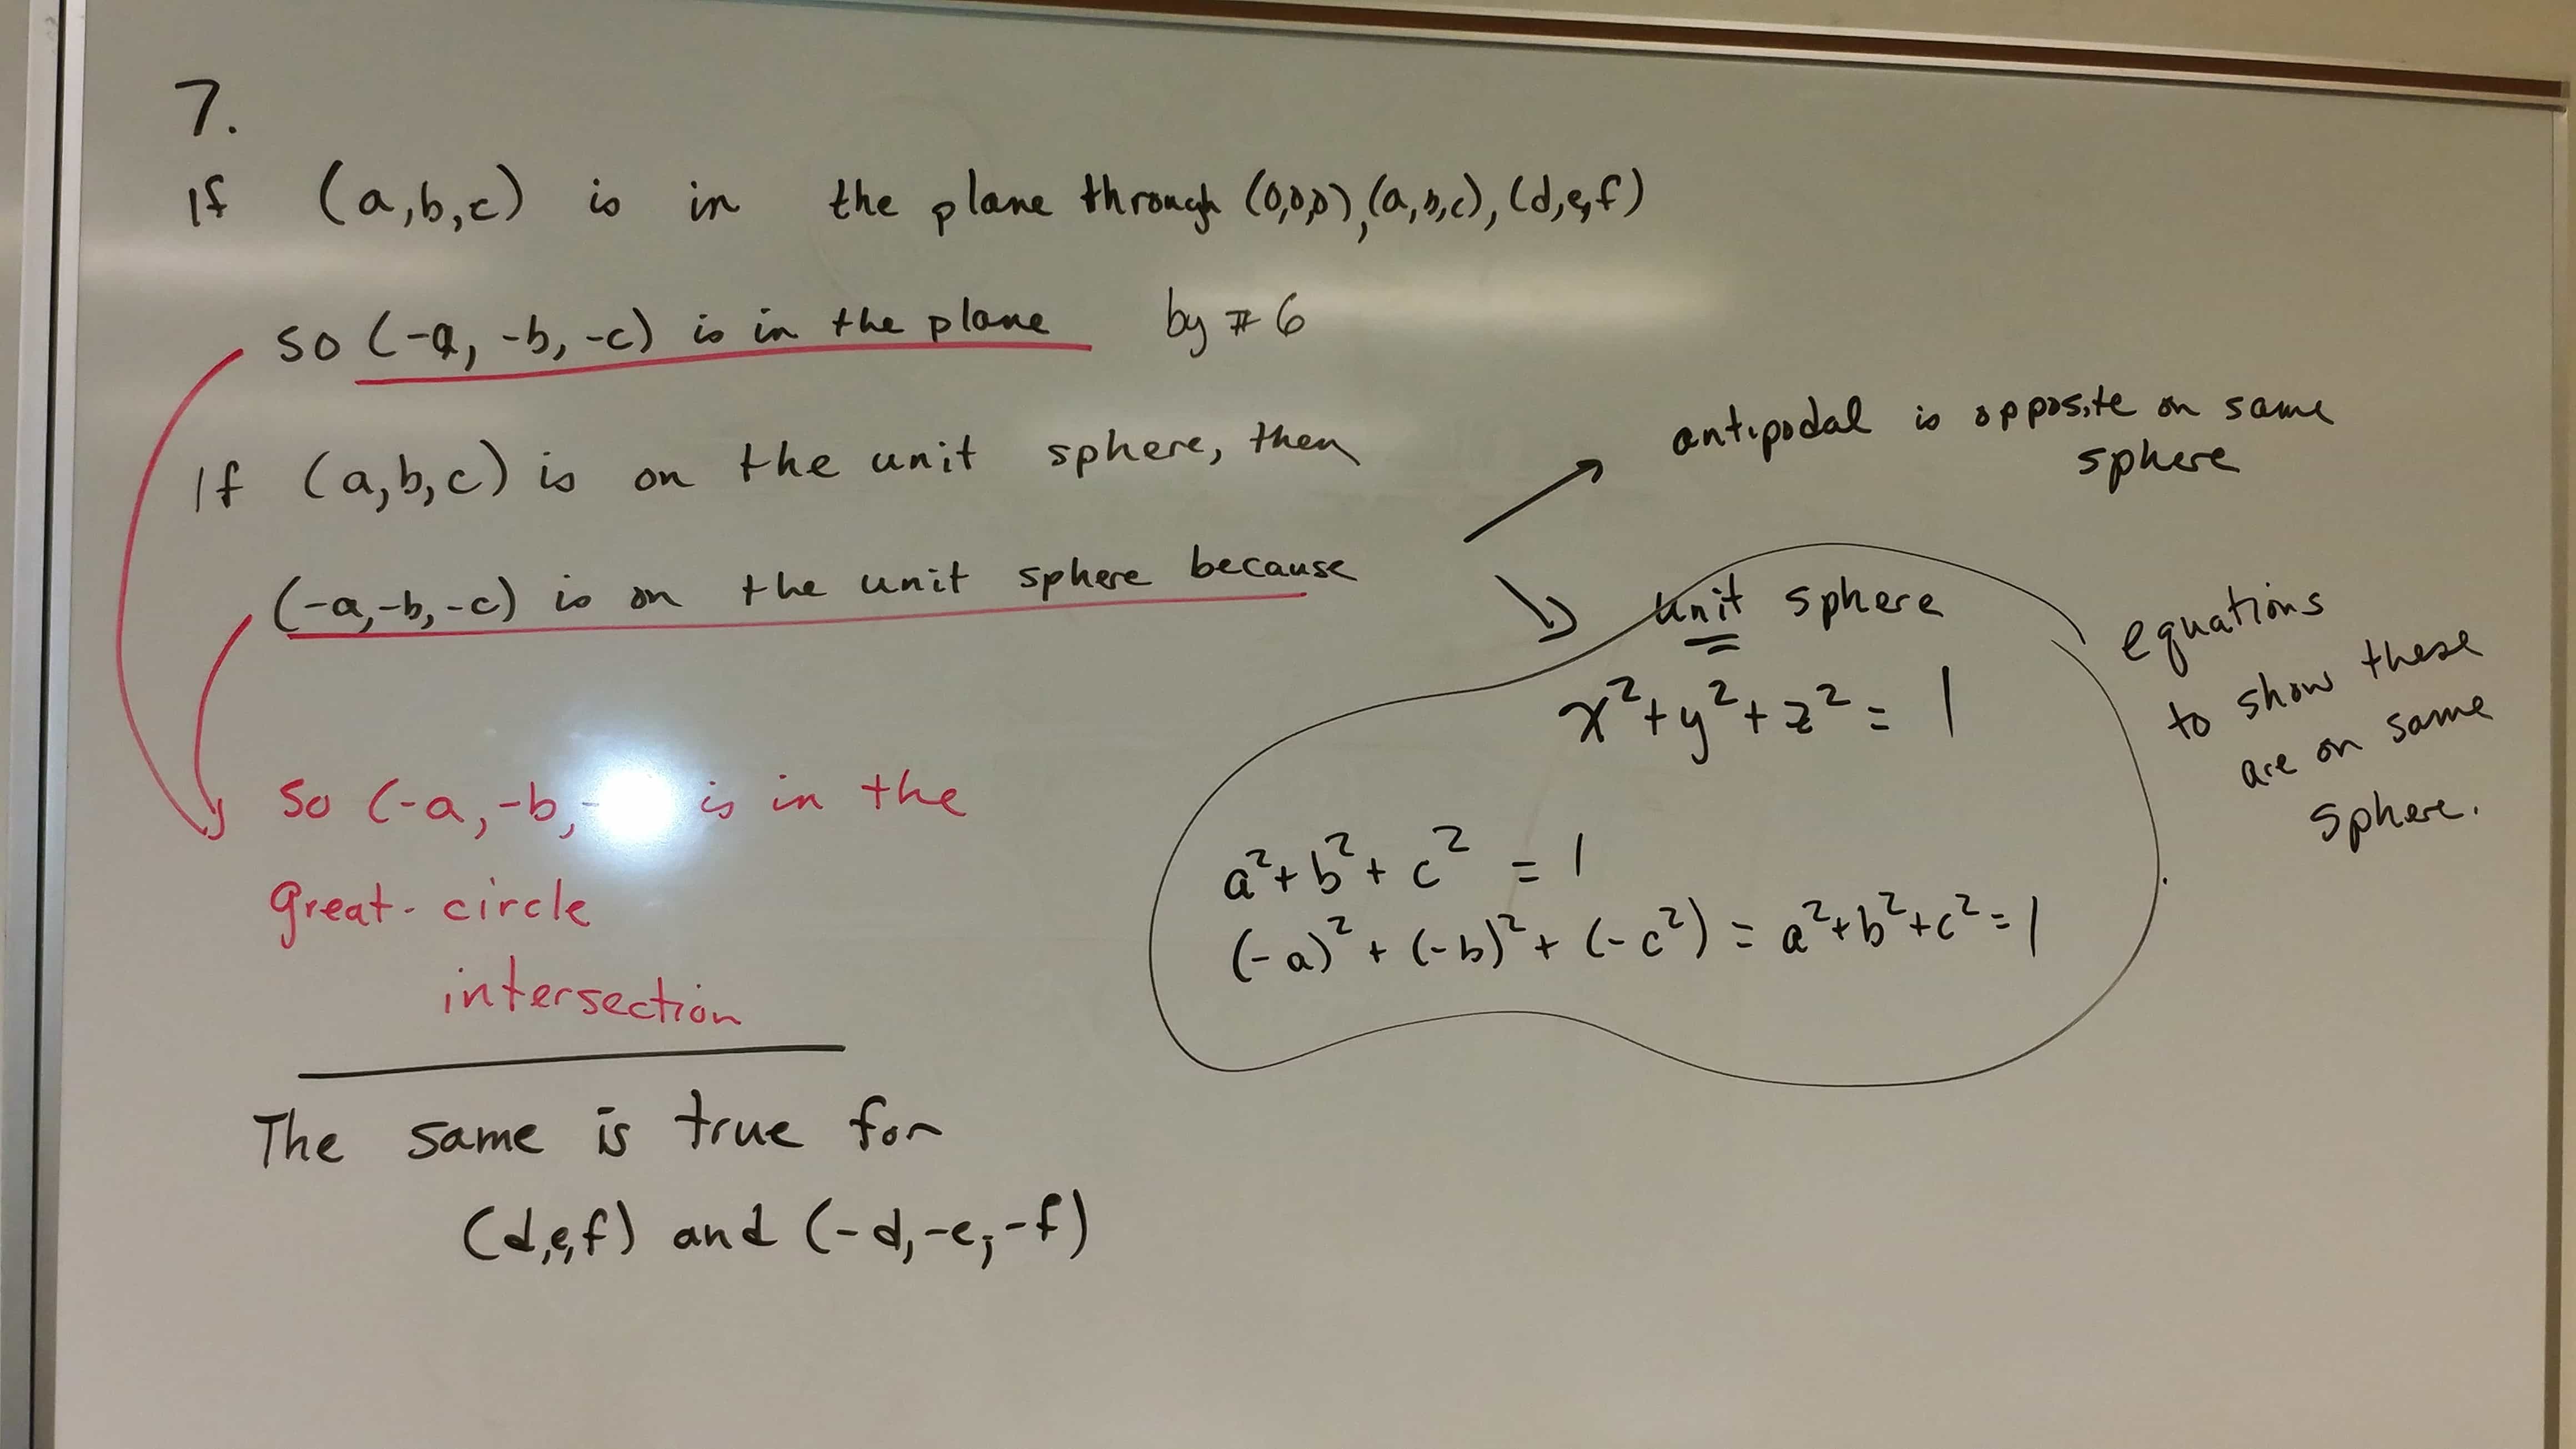 7.
If (a,b,c) is in the plane through (0,0,0), (a,b,c), (d,e,f)
so (-a, -b, -c) is in the plane by #6
If (a,b,c) is on the unit sphere, then
(-a,-b,-c) is on the unit sphere because
so (-a, -b, - is in the
great-circle
intersection
The same is true for
(d,e,f) and (-d,-e,-f)
antipodal is opposite on same
sphere
unit sphere
x²+y²+z² = 1
a²+b²+c² = 1
(-a)²+(-b)²+(-c²) = a²+b²+c²=1
equations
to show these
are on same
sphere.